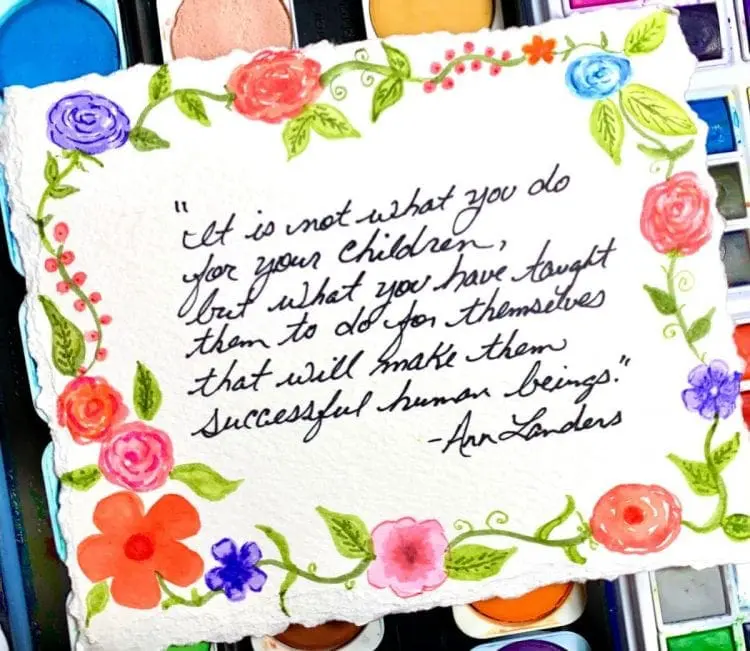 "It is not what you do
for your children,
but what you have taught
them to do for themselves
that will make them
successful human beings."
-Ann Landers